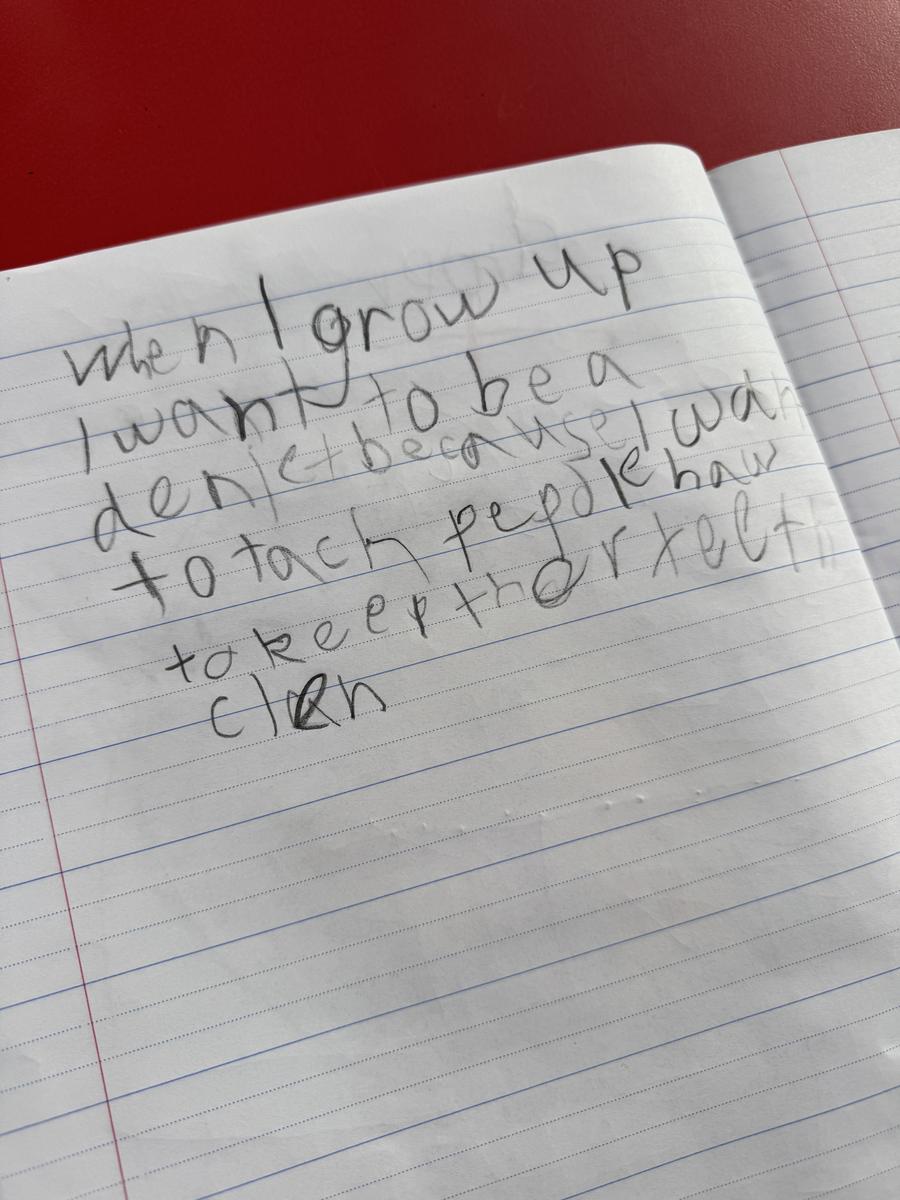 When I grow up
I want to be a
denict because I wan
to tach pepole haw
to keep ther teeth
clen